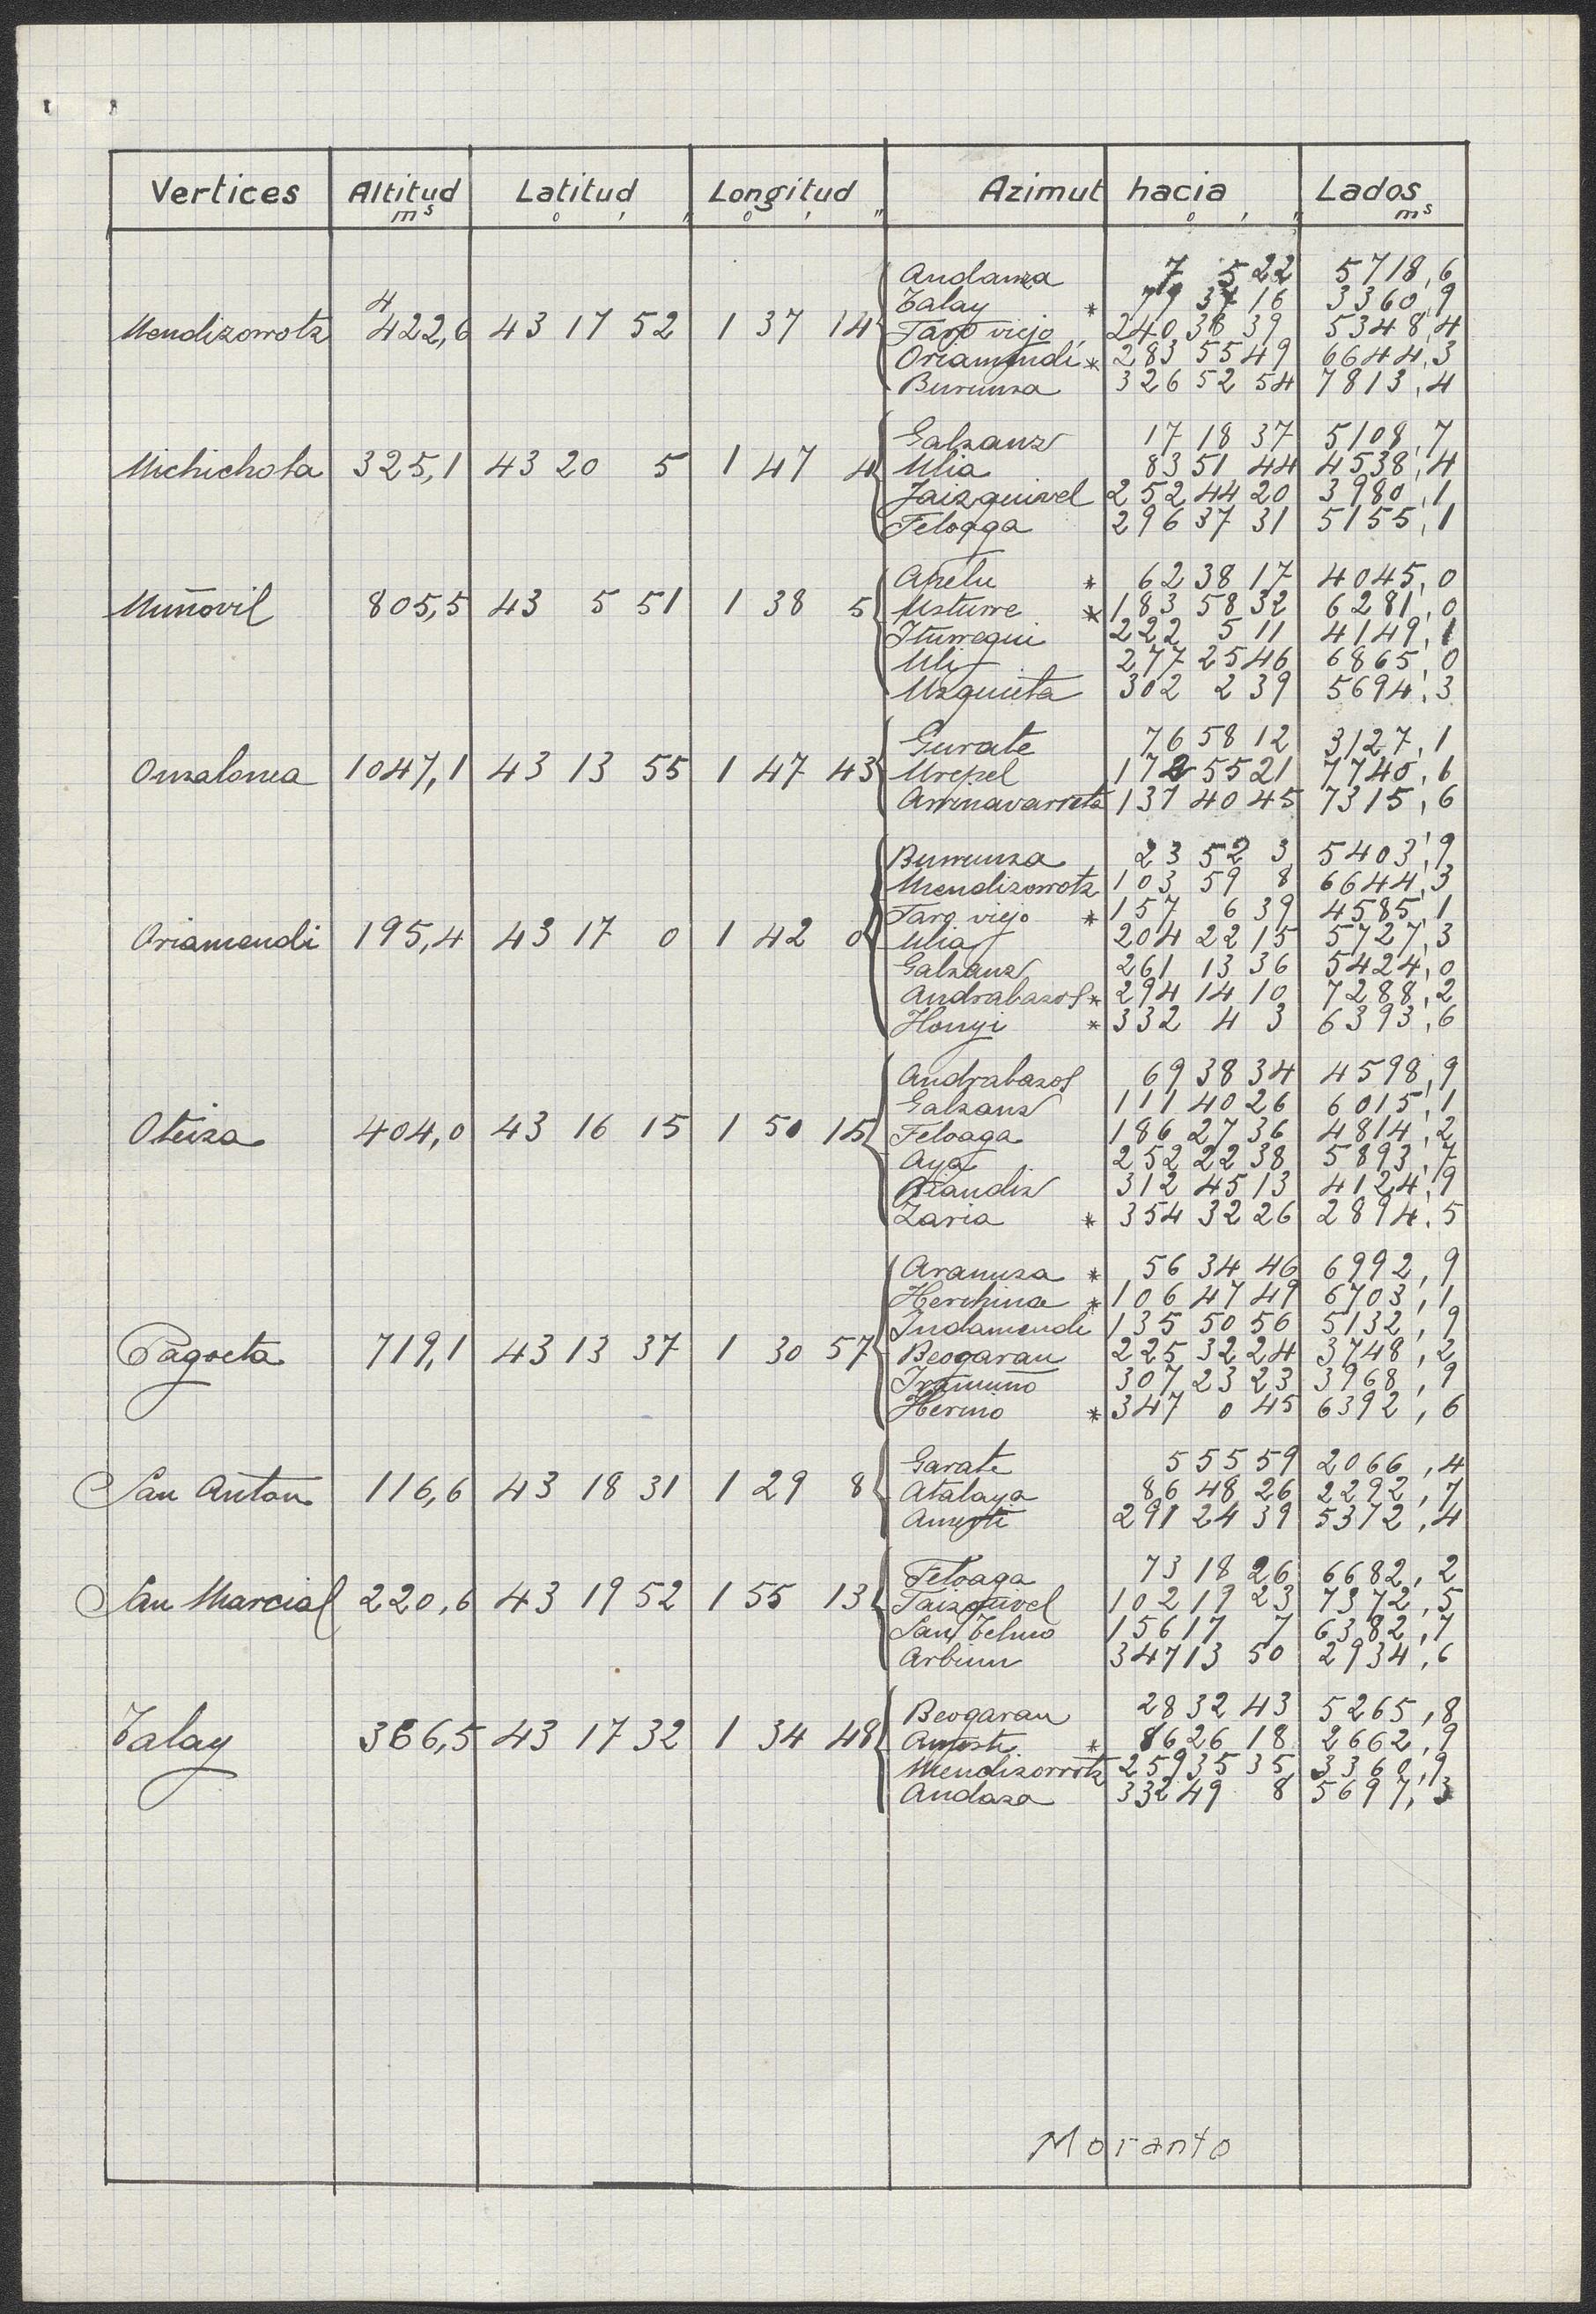 Vertices Altitud Latitud Longitud Azimut hacia Lados
ms ° ' " ° ' " ° ' " ms
Andarza 7 5 22 5718,6
4
Talay * 79 37 16 3360,9
Mendizorrotz 422,6 43 17 52 1 37 14 Faro viejo 240 38 39 5348,4
Oriamendi * 283 55 49 6644,3
Burunza 326 52 54 7813,4
Galzaus 17 18 37 5108,7
Michichola 325,1 43 20 5 1 47 4 Ulia 83 51 44 4538,4
Jaizquivel 252 44 20 3980,1
Feloaga 296 37 31 5155,1
Anelu * 62 38 17 4045,0
Muñovil 805,5 43 5 51 1 38 5 Usturre * 183 58 32 6281,0
Iturregui 222 5 11 4149,1
Uli 277 25 46 6865,0
Uzquieta 302 2 39 5694,3
Gurate 76 58 12 3127,1
Onzalonea 1047,1 43 13 55 1 47 43 Urepel 172 55 21 7740,6
Arrinavarreta 137 40 45 7315,6
Burrunza 23 52 3 5403,9
Mendizorrotz 103 59 8 6644,3
Faro viejo * 157 6 39 4585,1
Oriamendi 195,4 43 17 0 1 42 0 Ulia 204 22 15 5727,3
Galzaus 261 13 36 5424,0
Andrabazof * 294 14 10 7288,2
Honyi * 332 4 3 6393,6
Andrabazof 69 38 34 4598,9
Galzaus 111 40 26 6015,1
Oteiza 404,0 43 16 15 1 50 15 Feloaga 186 27 36 4814,2
Aya 252 22 38 5893,7
Aiandiz 312 45 13 4124,9
Zaria * 354 32 26 2894,5
Aranuza * 56 34 46 6992,9
Herchina * 106 47 49 6703,1
Indamendi 135 50 56 5132,9
Pagoeta 719,1 43 13 37 1 30 57 Beogaran 225 32 24 3748,2
Iramuño 307 23 23 3968,9
Hernio * 347 0 45 6392,6
Garate 5 55 59 2066,4
San Anton 116,6 43 18 31 1 29 8 Atalaya 86 48 26 2292,7
Amesti 291 24 39 5372,4
Feloaga 73 18 26 6682,2
San Marcial 220,6 43 19 52 1 55 13 Jaizquivel 102 19 23 7372,5
San Telmo 156 17 7 6382,7
Arbiun 347 13 50 2934,6
Beogaran 28 32 43 5265,8
Talay 366,5 43 17 32 1 34 48 Amesti * 86 26 18 2662,9
Mendizorrotz 259 35 35 3360,9
Andaza 332 49 8 5697,3
Moranto